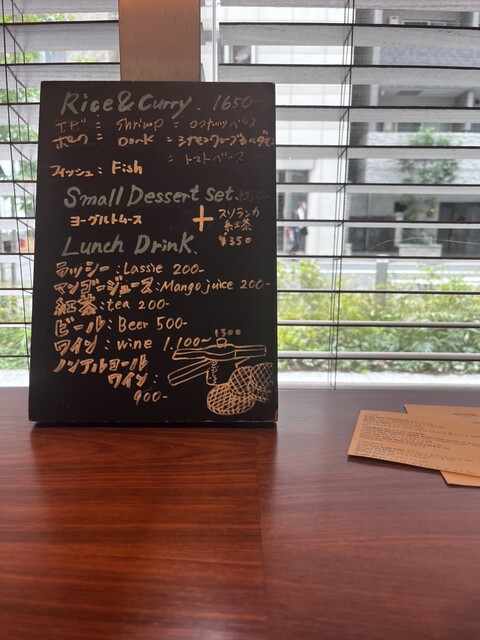 Rice & Curry. 1650-
エビ : Shrimp : ココナッツベース
ポーク : Pork : シナモン
: トマトベース
フィッシュ : Fish
Small Dessert Set.
ヨーグルトムース + スリランカ
紅茶
¥350
Lunch Drink.
ラッシー : Lassie 200-
マンゴージュース : Mango juice 200-
紅茶 : tea 200-
ビール : Beer 500-
ワイン : wine 1.100~
1300
ノンアルコール
ワイン :
900-